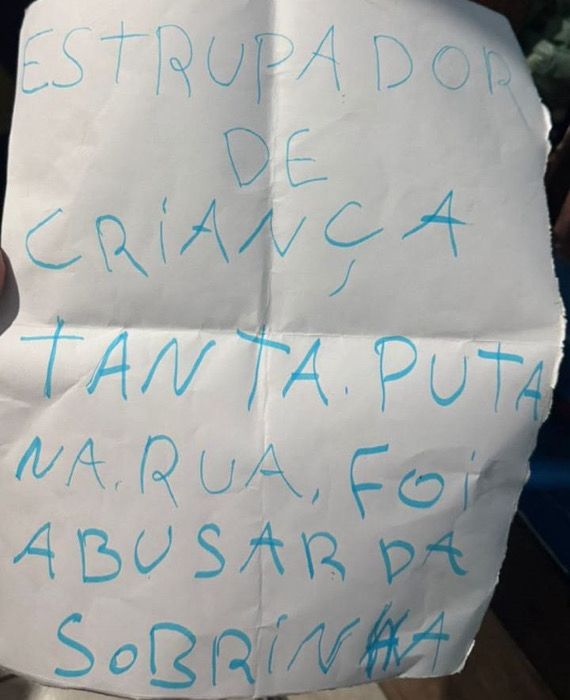 ESTRUPADOR
DE
CRIANÇA
TANTA. PUTA
NA. RUA, FOI
ABUSAR DA
SOBRINHA